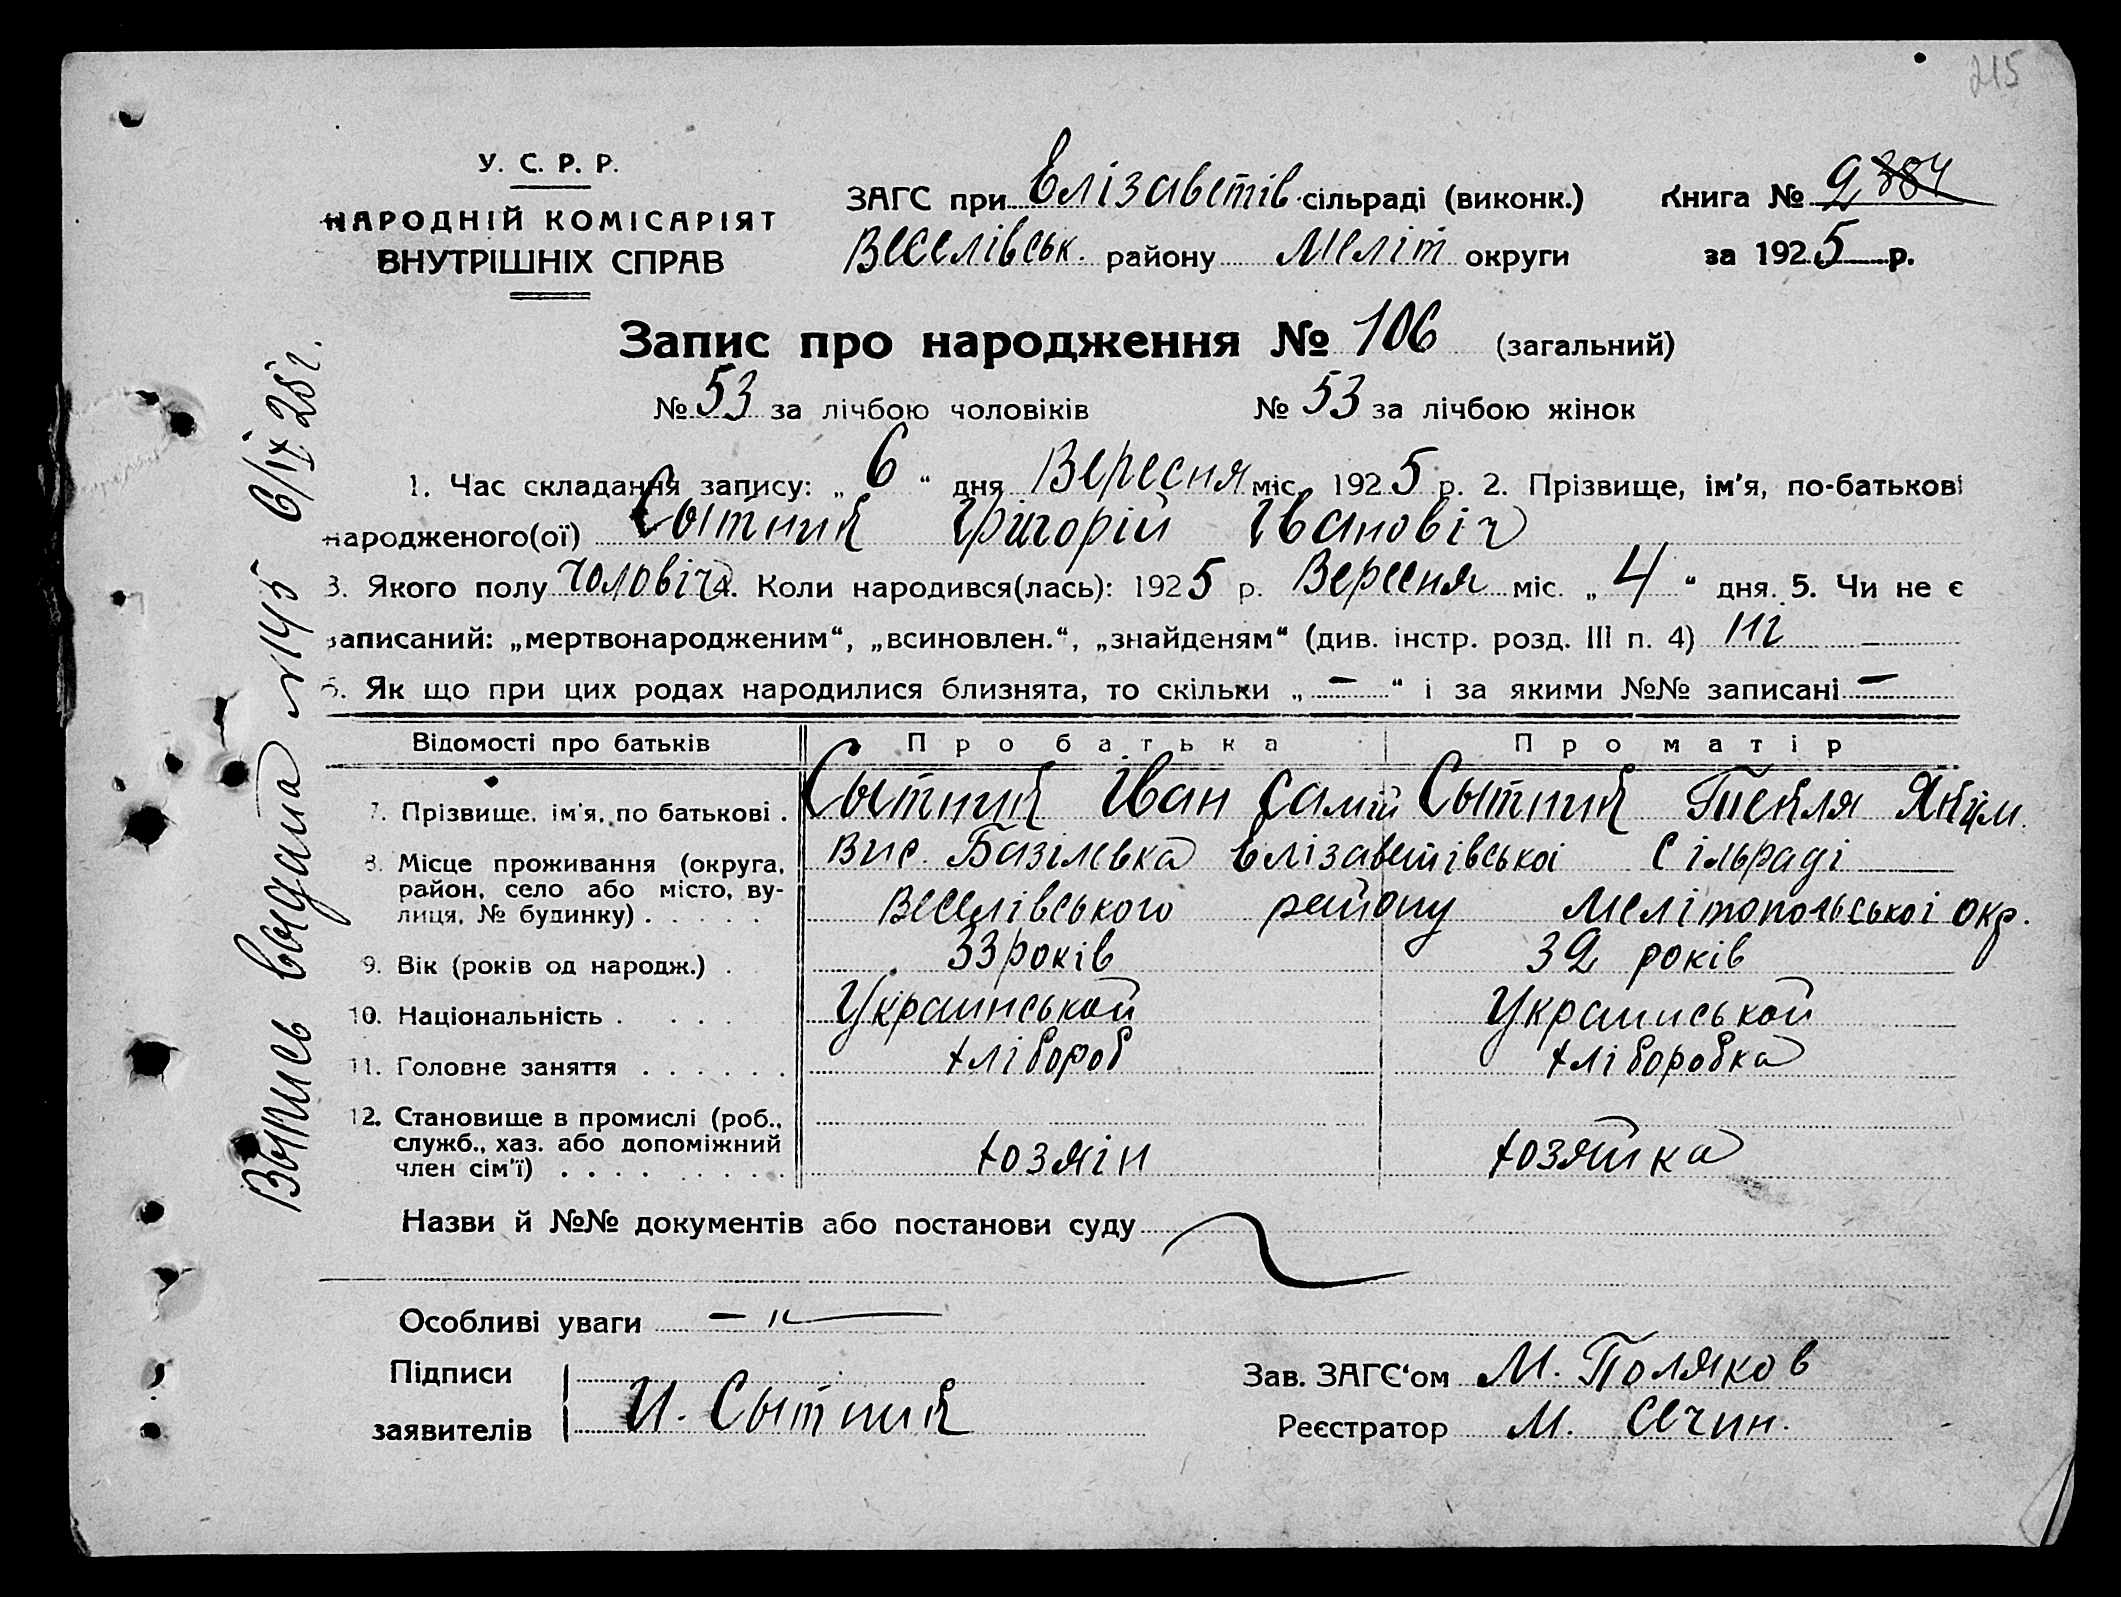 215
У. С. Р. Р.
НАРОДНІЙ КОМІСАРІЯТ
ВНУТРІШНІХ СПРАВ
ЗАГС при Елізаветів. сільраді (виконк.)
Веселівськ. району Меліт округи
Книга № 2
за 1925 р.
Запис про народження № 106 (загальний)
№ 53 за лічбою чоловіків № 53 за лічбою жінок
1. Час складання запису: „ 6 “ дня Вересня міс. 1925 р. 2. Прізвище, ім'я, по-батькові
народженого(ої) Сытний Григорій Івановіч
3. Якого полу чоловіч. Коли народився(лась): 1925 р. Вересня міс. „ 4 “ дня. 5. Чи не є
записаний: „мертвонародженим“, „всиновлен.“, „знайденям“ (див. інстр. розд. III п. 4) ні
6. Як що при цих родах народилися близнята, то скільки „ — “ і за якими №№ записані —
Відомості про батьків Про батька Про матір
7. Прізвище, ім'я, по батькові . Сытний Іван Самій Сытний Текля Якум.
8. Місце проживання (округа, район, село або місто, вулиця, № будинку) . . . . . Вис. Базілевка Елізаветівськоі Сільраді
Веселівського району Мелітопольськоі окр.
9. Вік (років од народж.) . 33 років 32 років
10. Національність . . . . Украинськой Украинськой
11. Головне заняття . . . . . . хлібороб хлібробка
12. Становище в промислі (роб., служб., хаз. або допоміжний член сім'ї) . . . . . . . . хозяін хозяйка
Назви й №№ документів або постанови суду
Особливі уваги — " —
Підписи
заявителів И. Сытний
Зав. ЗАГС‘ом М. Поляков
Реєстратор М. Сечин.
Выпись выдана №145 6/IX 25 г.